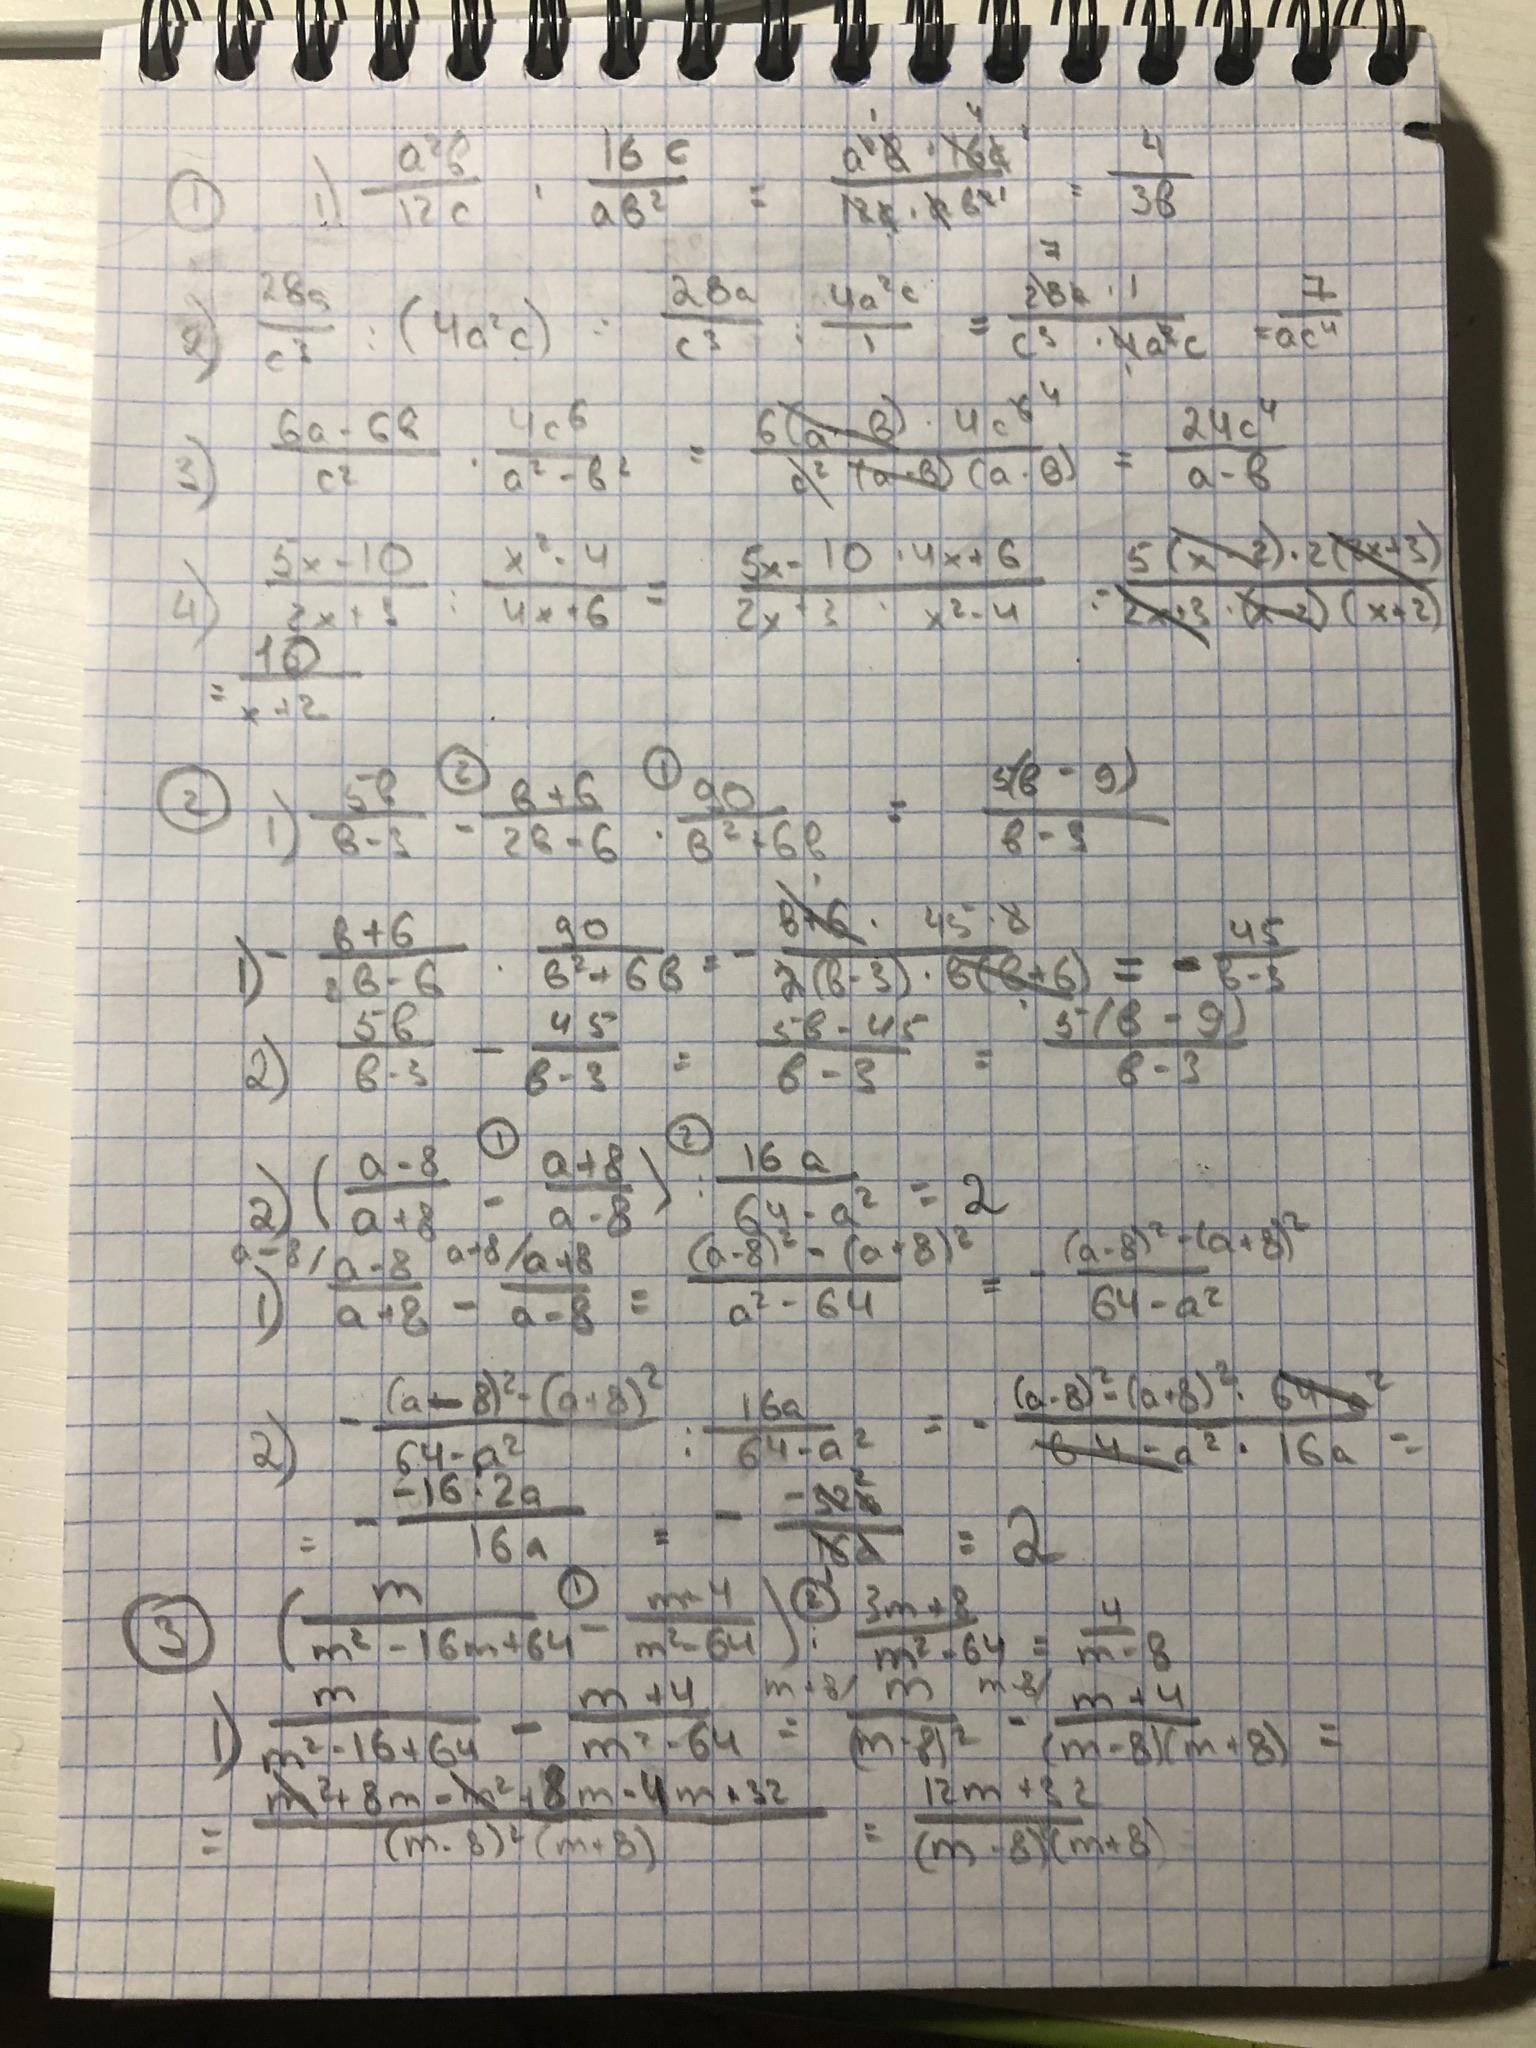 ① 1) a²b/12c · 16c/ab² = a²b · 16c/12c · ab² = 4/3b
2) 28a/c³ : (4a²c) = 28a/c³ : 4a²c/1 = 28a · 1/c³ · 4a²c = 7/ac⁴
3) 6a - 6b/c² · 4c⁶/a² - b² = 6(a - b) · 4c⁶/c² (a - b) (a · b) = 24c⁴/a - b
4) 5x - 10/2x + 3 : x² - 4/4x + 6 = 5x - 10 · 4x + 6/2x + 3 · x² - 4 = 5(x - 2) · 2(2x + 3)/2x + 3 · (x - 2)(x + 2)
= 10/x + 2
② 1) 5b/b - 3 - b + 6/2b - 6 · 90/b² + 6b = 5(b - 9)/b - 3
1) - b + 6/2b - 6 · 90/b² + 6b = - b + 6 · 45 · 2/2(b - 3) · b(b + 6) = - 45/b - 3
2) 5b/b - 3 - 45/b - 3 = 5b - 45/b - 3 = 5(b - 9)/b - 3
2) (a - 8/a + 8 - a + 8/a - 8) : 16a/64 - a² = 2
1) a - 8/ a - 8/a + 8 - a + 8/ a + 8/a - 8 = (a - 8)² - (a + 8)²/a² - 64 = - (a - 8)² - (a + 8)²/64 - a²
2) - (a - 8)² - (a + 8)²/64 - a² : 16a/64 - a² = - (a - 8)² - (a + 8)² · 64 - a²/64 - a² · 16a =
= - -16 · 2a/16a = - -32a/16a = 2
③ (m/m² - 16m + 64 - m + 4/m² - 64) : 3m + 8/m² - 64 = 4/m - 8
1) m/m² - 16 + 64 - m + 4/m² - 64 = m + 8/ m/(m - 8)² - m - 8/ m + 4/(m - 8)(m + 8) =
= m² + 8m - m² + 8m - 4m + 32/(m - 8)² (m + 8) = 12m + 32/(m - 8)(m + 8)